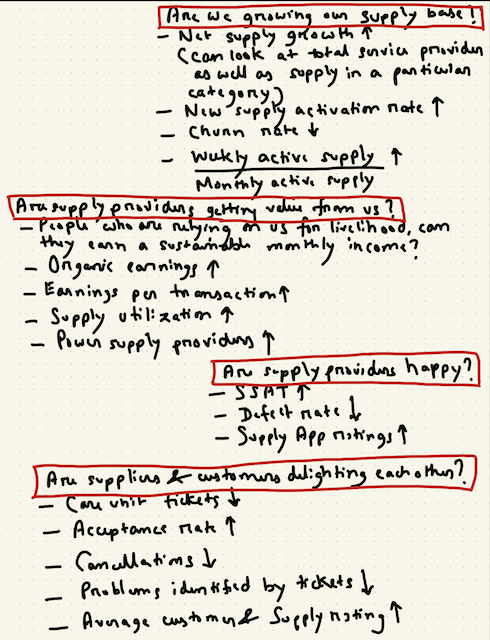 Are we growing our supply base!
- Net supply growth ↑
(can look at total service providers
as well as supply in a particular
category)
- New supply activation rate ↑
- Churn rate ↓
- Weekly active supply ↑
Monthly active supply
Are supply providers getting value from us?
- People who are relying on us for livelihood, can
they earn a sustainable monthly income?
- Organic earnings ↑
- Earnings per transaction ↑
- Supply utilization ↑
- Power supply providers ↑
Are supply providers happy?
- SSAT ↑
- Defect rate ↓
- Supply App ratings ↑
Are suppliers & customers delighting each other?
- Care unit tickets ↓
- Acceptance rate ↑
- Cancellations ↓
- Problems identified by tickets ↓
- Average customer & Supply rating ↑